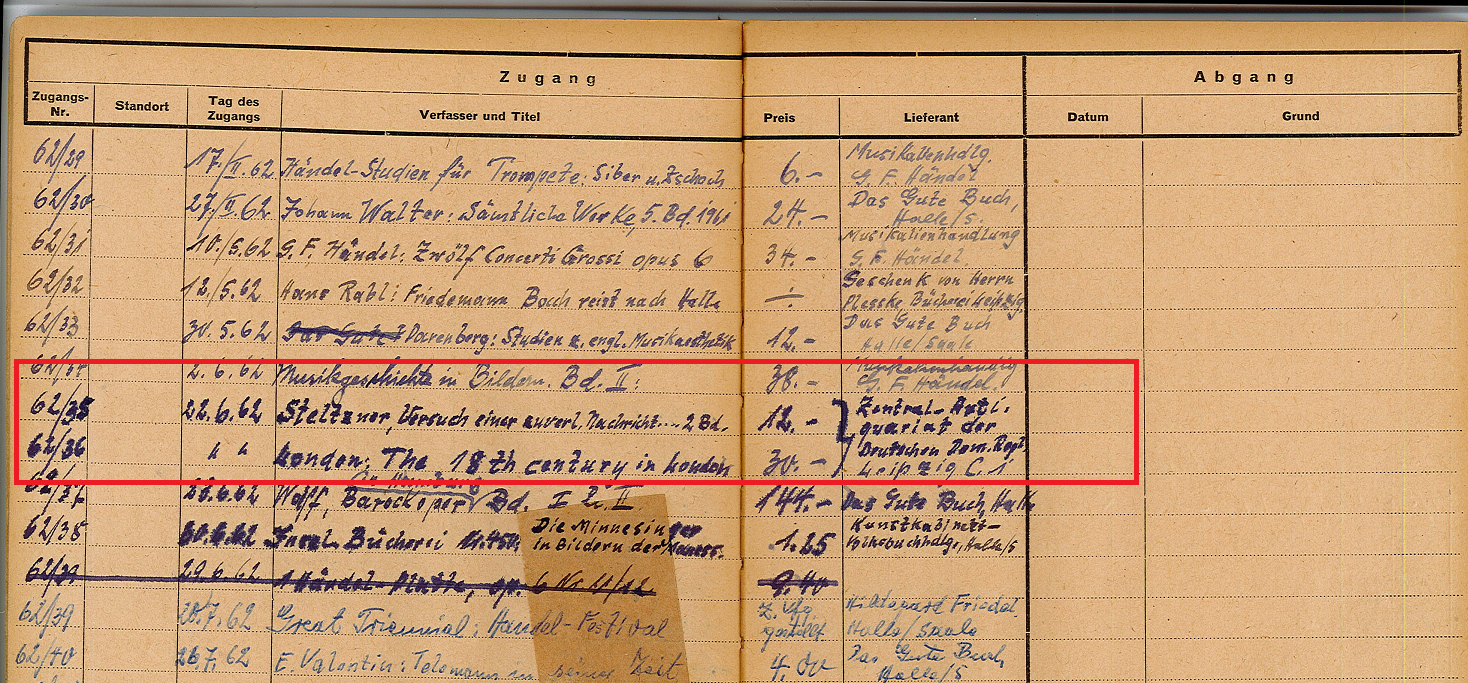 Zugang
Abgang
Zugangs-Nr. Standort Tag des Zugangs Verfasser und Titel Preis Lieferant Datum Grund
62/29 17./II.62 Händel-Studien für Trompete: Siber u. Zschoch 6.- Musikalienhdlg. G. F. Händel
62/30 27./II.62 Johann Walter: Sämtliche Werke, 5. Bd. 1961 24.- Das Gute Buch, Halle/S.
62/31 10./5.62 G. F. Händel: Zwölf Concerti Grossi opus 6 34.- Musikalienhandlung G. F. Händel.
62/32 12./5.62 Hans Rabl: Friedemann Bach reist nach Halle -.- Geschenk von Herrn Plesske Bücherei Leipzig.
62/33 30.5.62 Das Gute Darenberg: Studien z. engl. Musikaesthetik 12.- Das Gute Buch Halle/Saale
62/34 2.6.62 Musikgeschichte in Bildern. Bd. II: 38.- Musikalienhandlg G. F. Händel.
62/35 22.6.62 Steltzner, Versuch einer zuverl. Nachricht.... 2 Bd. 12.- Zentral-Antiquariat der
62/36 " " London: The 18th century in London 30.- Deutschen Dem. Repl. Leipzig C. 1
in Hamburg
62/37 28.6.62 Wolff, Barockoper Bd. I u. II 144.- Das Gute Buch, Halle
62/38 30.6.62 Insel-Bücherei N. 450: Die Minnesinger in Bildern der Maness. 1.25 Kunstkabinett- Halle/S
62/39 29.6.62 1 Händel-Platte, op. 6 Nr 11/12 9.40
62/39 20.7.62 Great Triennial: Handel-Festival z. Vfg. gestellt Hildegard Friedel Halle/Saale
62/40 26.7.62 E. Valentin: Telemann in seiner Zeit 4.00 Das Gute Buch Halle/S